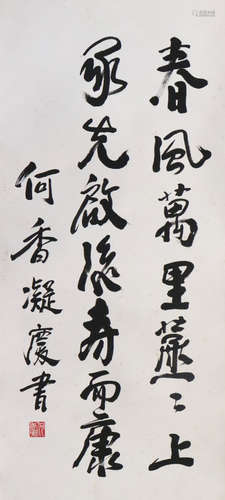 春風萬里〻上
承先啟後壽而康
何香凝慶書